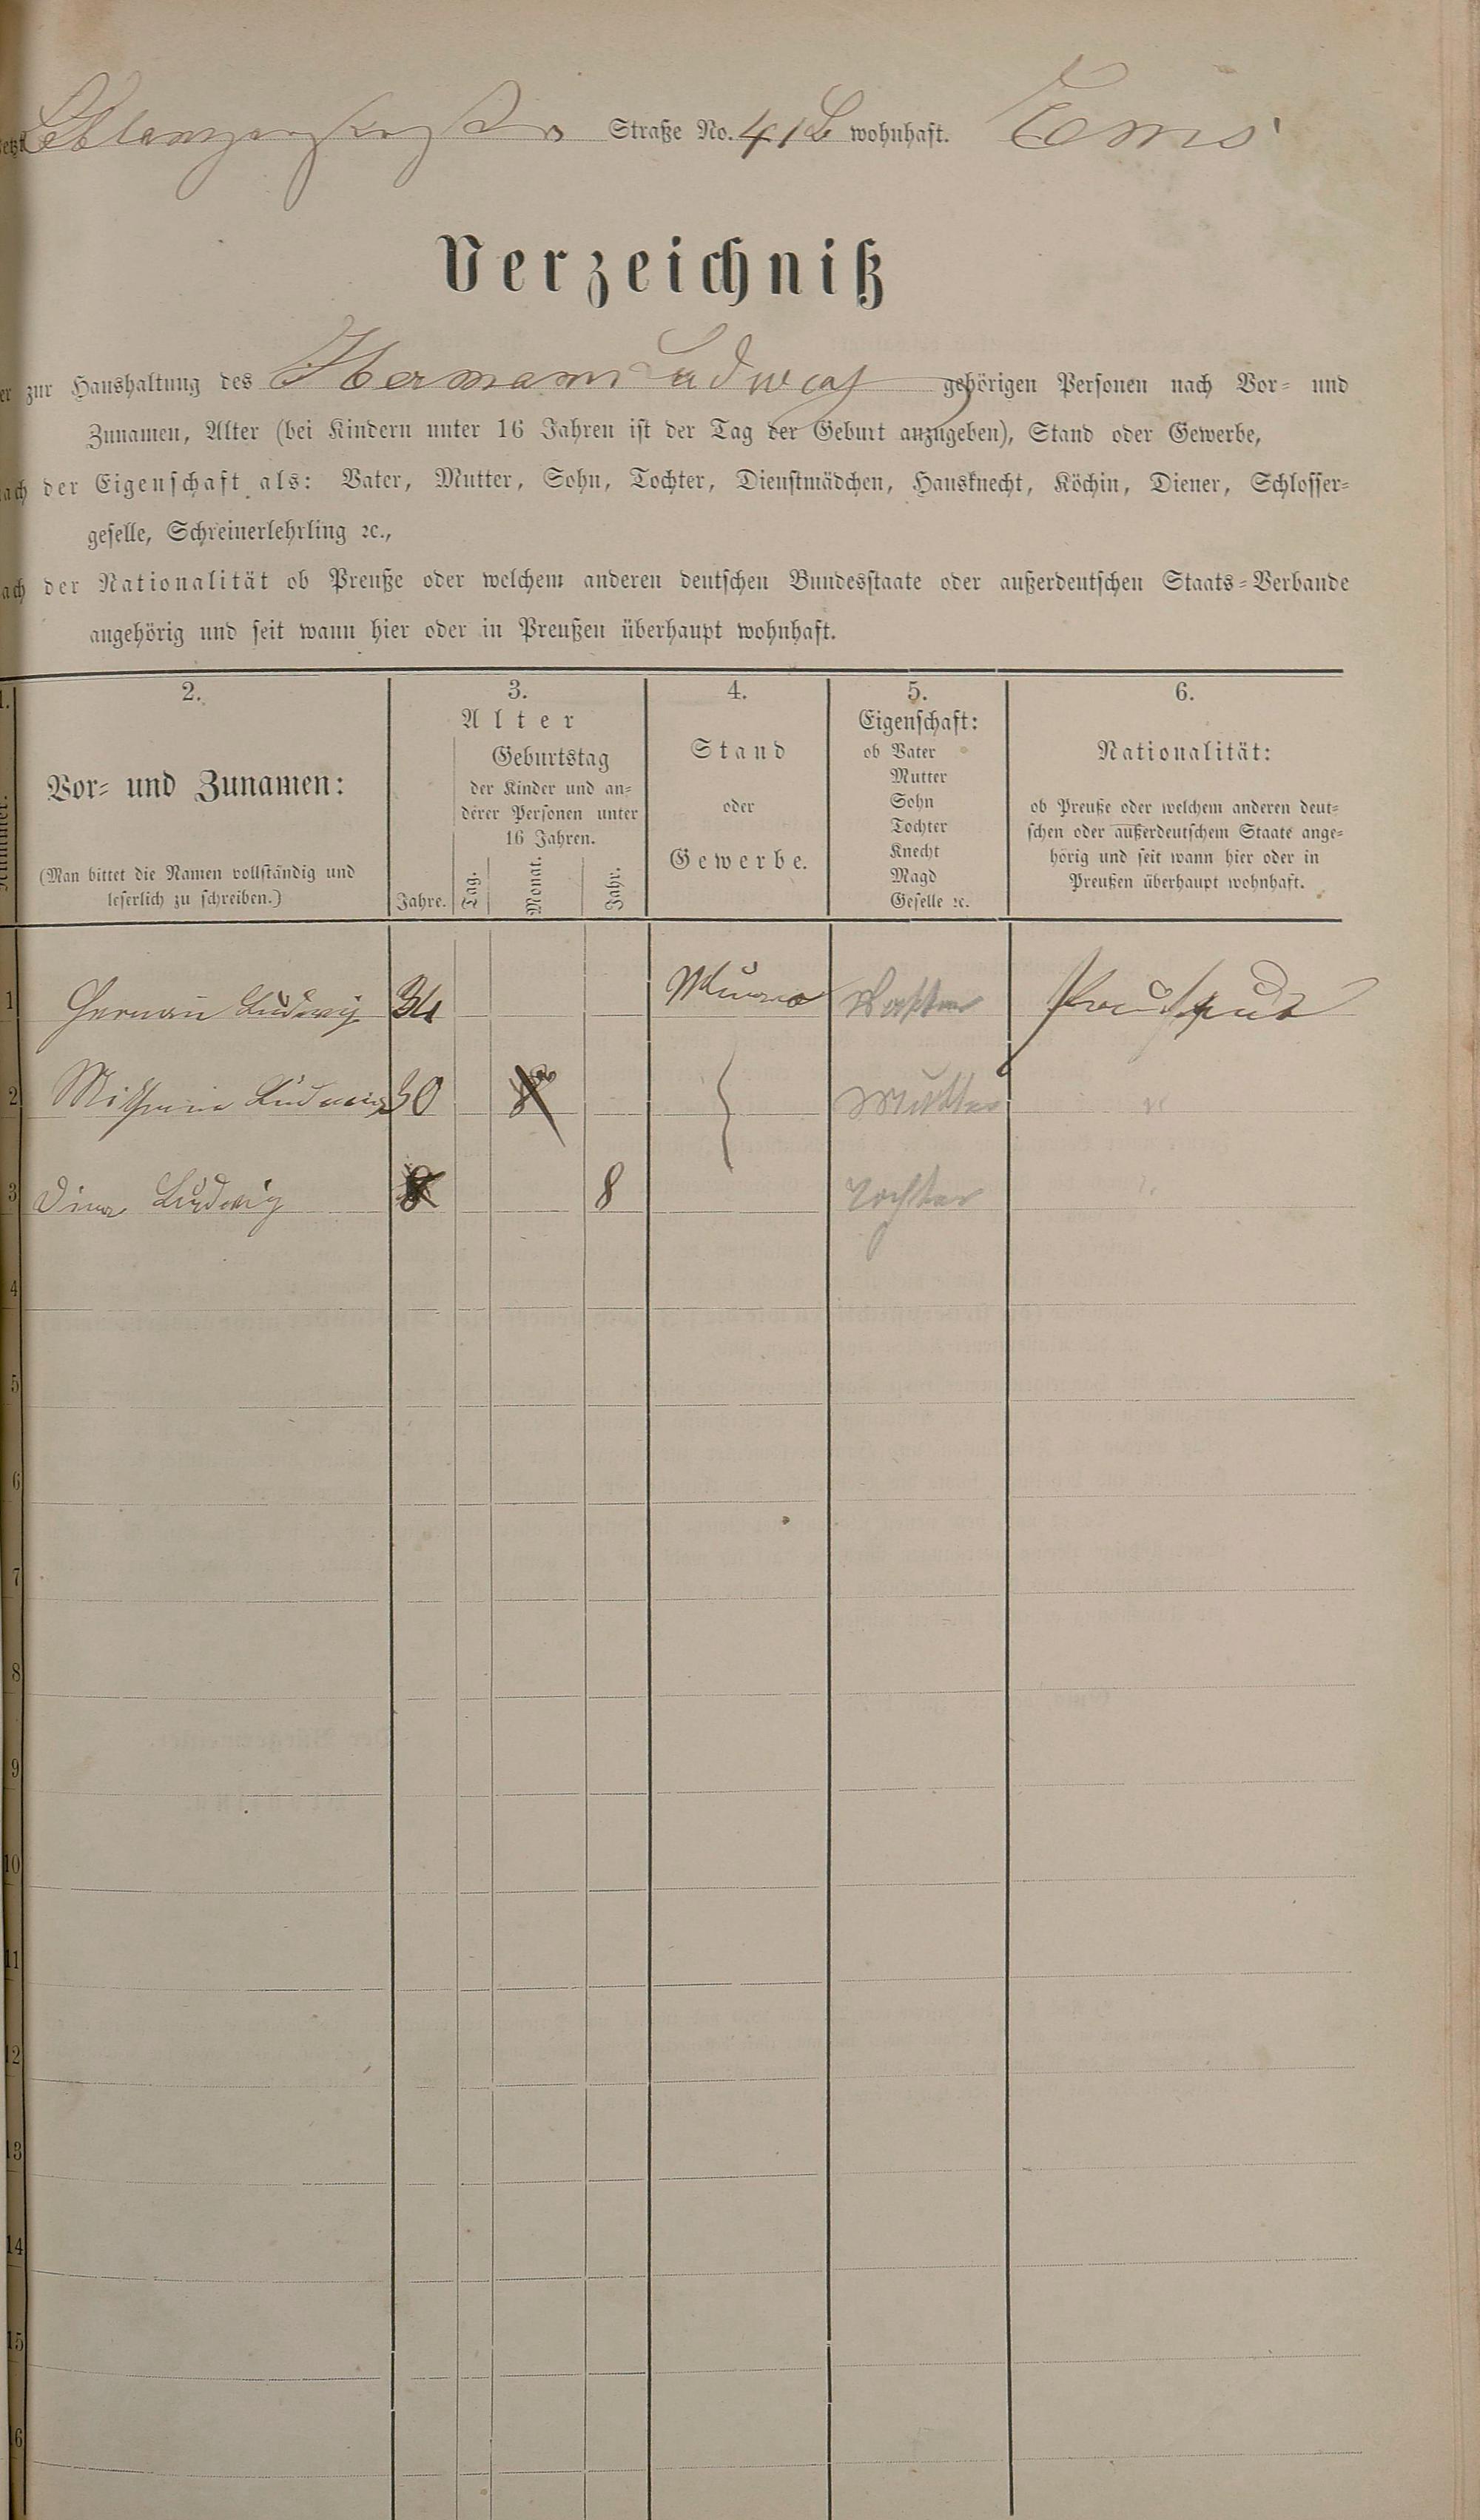 Straße No. 41 b wohnhaft. Ems
Verzeichniß
zur Haushaltung des Hermann Ludwig gehörigen Personen nach Vor- und
Zunamen, Alter (bei Kindern unter 16 Jahren ist der Tag der Geburt anzugeben), Stand oder Gewerbe,
der Eigenschaft als: Vater, Mutter, Sohn, Tochter, Dienstmädchen, Hausknecht, Köchin, Diener, Schlosser-
geselle, Schreinerlehrling ꝛc.,
der Nationalität ob Preuße oder welchem anderen deutschen Bundesstaate oder außerdeutschen Staats-Verbande
angehörig und seit wann hier oder in Preußen überhaupt wohnhaft.
1. 2. 3. 4. 5. 6.
Vor- und Zunamen:
(Man bittet die Namen vollständig und
leserlich zu schreiben.)
Alter
Jahre.
Geburtstag
der Kinder und an-
derer Personen unter
16 Jahren.
Tag. Monat. Jahr.
Stand
oder
Gewerbe.
Eigenschaft:
ob Vater
Mutter
Sohn
Tochter
Knecht
Magd
Geselle ꝛc.
Nationalität:
ob Preuße oder welchem anderen deut-
schen oder außerdeutschem Staate ange-
hörig und seit wann hier oder in
Preußen überhaupt wohnhaft.
1 Herman Ludwig 34
2 Ludwig 30 Mutter
3 Dina Ludwig 8 Tochter
4
5
6
7
8
9
10
11
12
13
14
15
16